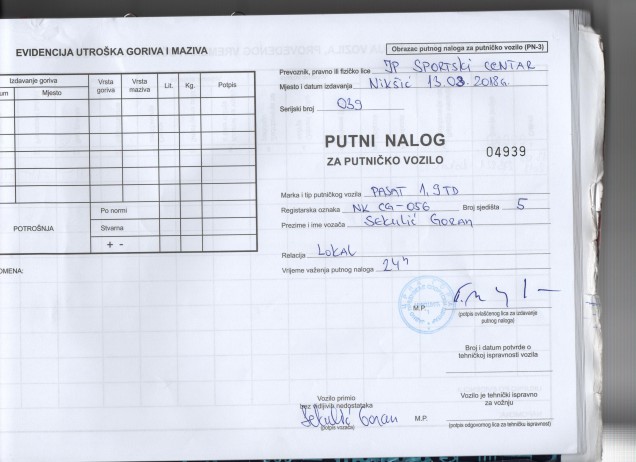 EVIDENCIJA UTROŠKA GORIVA I MAZIVA
Izdavanje goriva
Mjesto
Vrsta goriva
Vrsta maziva
Lit.
Kg.
Potpis
POTROŠNJA
Po normi
Stvarna
+ -
Obrazac putnog naloga za putničko vozilo (PN-3)
Prevoznik, pravno ili fizičko lice JP SPORTSKI CENTAR
Mjesto i datum izdavanja Nikšić 13.03.2018g.
Serijski broj 039
PUTNI NALOG
ZA PUTNIČKO VOZILO
04939
Marka i tip putničkog vozila PASAT 1,9TD
Registarska oznaka NK CG-056 Broj sjedišta 5
Prezime i ime vozača SEKULIĆ GORAN
Relacija LOKAL
Vrijeme važenja putnog naloga 24h
M.P.
(potpis ovlašćenog lica za izdavanje
putnog naloga)
Broj i datum potvrde o
tehničkoj ispravnosti vozila
Vozilo primio
bez vidljivih nedostataka
Sekulić Goran
(potpis vozača)
M.P.
Vozilo je tehnički ispravno
za vožnju
(potpis odgovornog lica za tehničku ispravnost)